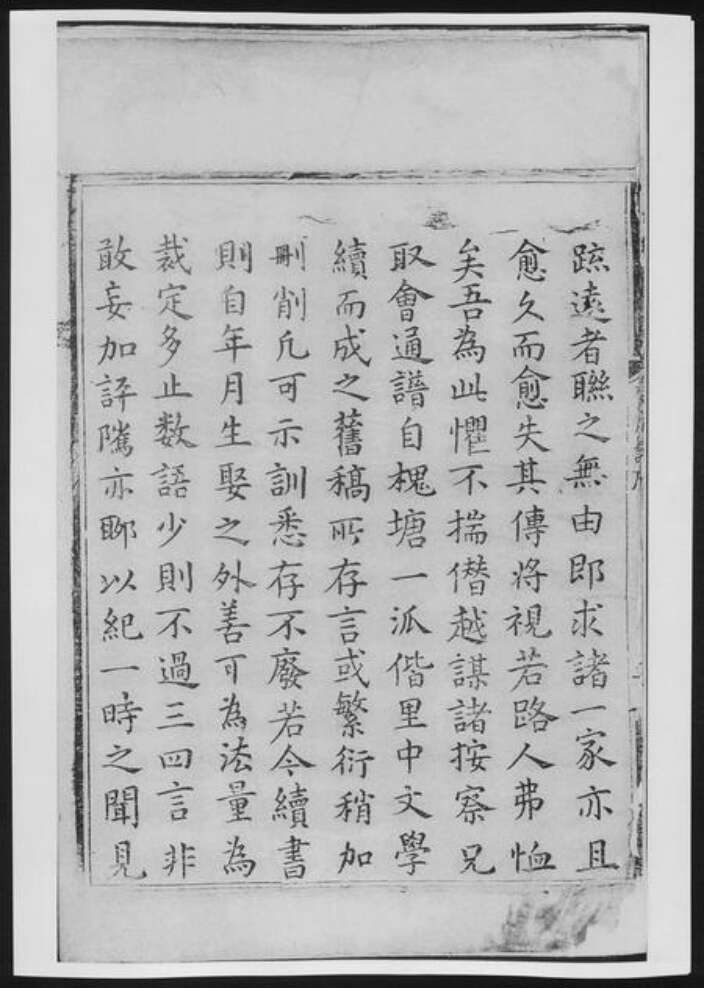 踈遠者聯之無由即求諸一家亦且
愈久而愈失其傳将視若路人弗恤
矣吾為此懼不揣僣越謀諸按察兄
取會通譜自槐塘一派偕里中文學
續而成之舊稿所存言或繁衍稍加
刪削凢可示訓悉存不廢若今續書
則自年月生娶之外善可為法量為
裁定多止数語少則不過三四言非
敢妄加評隲亦聊以紀一時之聞見